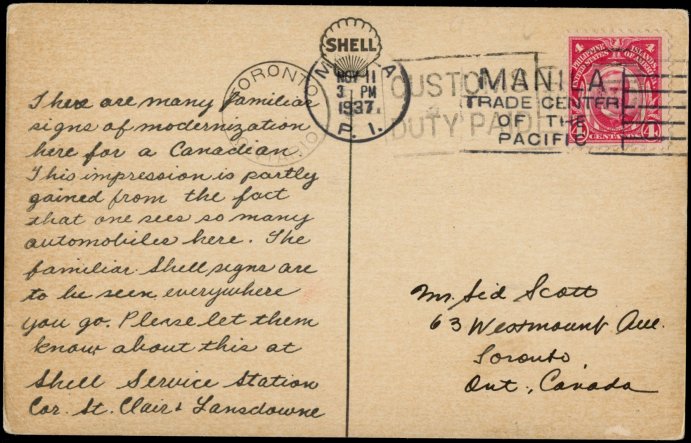 There are many familiar
signs of modernization
here for a Canadian
This impression is partly
gained from the fact
that one sees so many
automobiles here. The
familiar Shell signs are
to be seen everywhere
you go. Please let them
know about this at
Shell Service Station
Cor. St. Clair & Lansdowne
SHELL
MANILA
NOV 11
3 PM
1937
P. I.
TORONTO
CUSTOMS
DUTY PAID
MANILA
TRADE CENTER
OF THE
PACIFIC
PHILIPPINE ISLANDS
UNITED STATES OF AMERICA
4 4
4 CENTAVOS 4
Mr. Sid Scott
63 Westmount Ave.
Toronto,
Ont., Canada